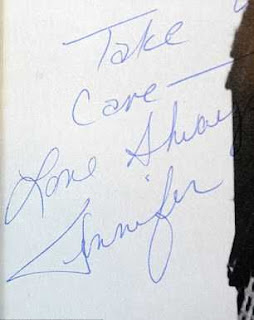 Take
Care —
Love Always
Jennifer